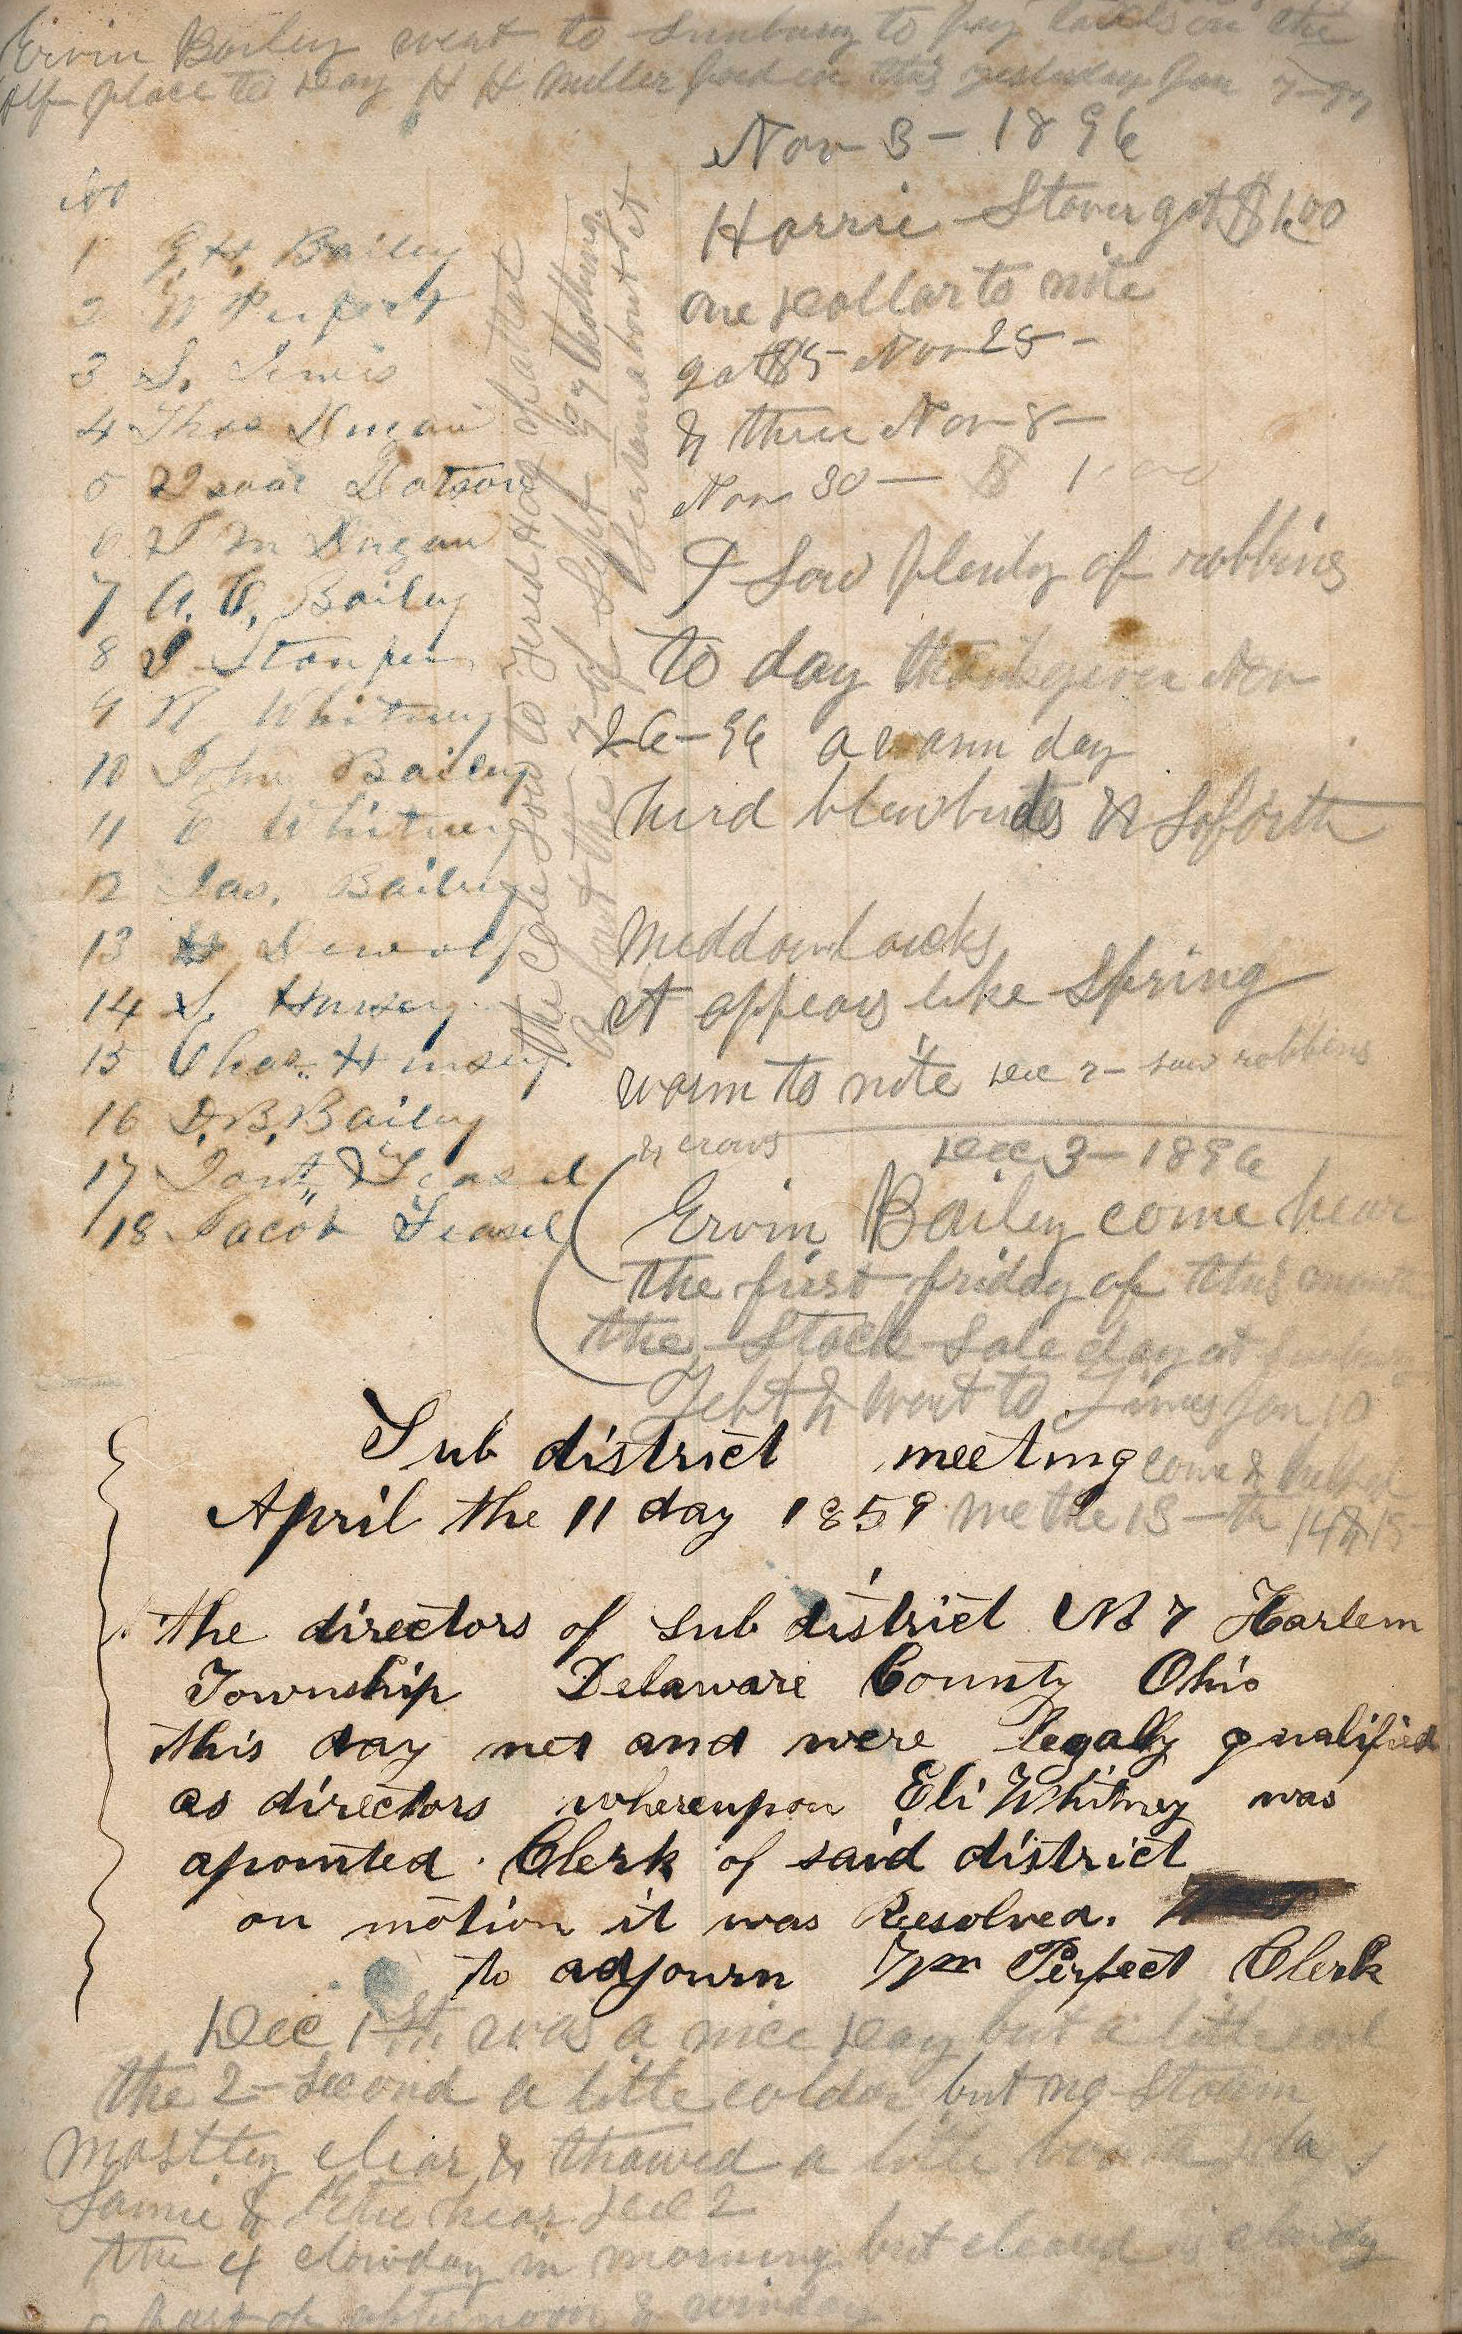 Ervin Bailey went to Sunbury to pay on the
place to day H H Miller this yesterday Jan
Nov 3 - 1896
Harrie Stover got $1.00
one dollar to note
got $5 Nov 25 -
& three Nov 8 -
Nov 30 - $ 1.00
I saw plenty of robbins
to day thanksgiven Nov
26-96 a warm day
herd blewburds & soforth
meddowlarks
it appears like Spring
warm to note Dec 2 - saw robbins
& crows
1 G. H. Bailey
2 W Perfect
3 S. Lewis
4 Thos Duncan
5 Isaac Dotson
6 Dugan
7 A. W. Bailey
8 Stanfer
9 R Whitney
10 John Bailey
11 E Whitney
12 Jas. Bailey
13 Dewolf
14 S. Hursey
15 Chas. Hursey
16 D. B. Bailey
17 Teasel
18 Jacob Teasel
the Cole Sow to Jered
about the 7 of Sept 97
about it
Dec 3 - 1896
Ervin Bailey come hear
the first friday of this
the Stock Sale day at
& went to Jan 10
come &
me the 13 - th 14 & 15
Sub district meeting
April the 11 day 1859
the directors of sub district No 7 Harlem
Township Delaware County Ohio
this day met and were Legally qualified
as directors whereupon Eli Whitney was
apointed Clerk of said district
on motion it was Resolved.
to adjourn Wm Perfect Clerk
Dec 1st was a nice day but a little cool
the 2 - second a little colder but no storm
mostly clear & thawed a little
& hear Dec 2
the 4 clowday in morning but cleard
part of afternoon & winday